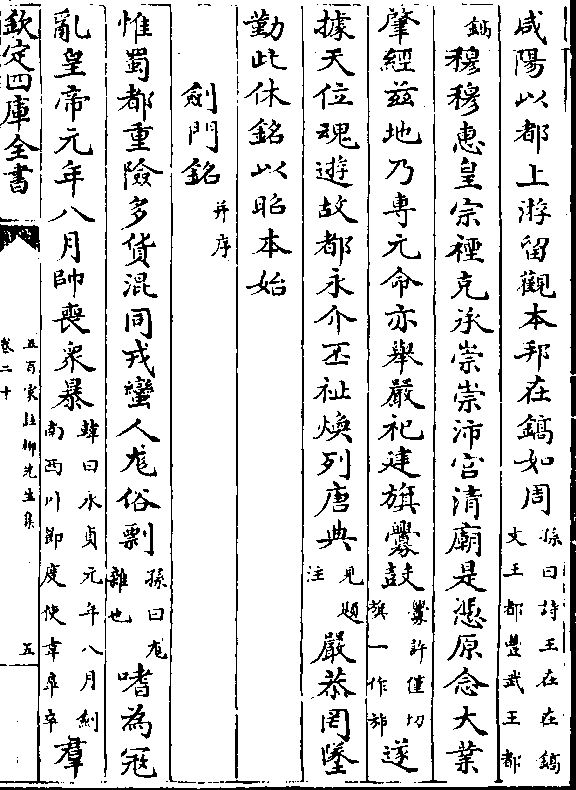 咸陽以都上游留觀本邦在鎬如周孫曰詩王在在鎬文王都豐武王都
鎬穆穆惠皇宗禋克承崇崇沛宮清廟是憑原念大業
肇經兹地乃專元命亦舉嚴祀建旗釁鼓釁許僅切旗一作旂遂
據天位魂遊故都永介丕祉煥列唐典見題注嚴恭罔墜
勤此休銘以昭本始
劍門銘并序
惟蜀都重險多貨混同戎蠻人尨俗剽孫曰尨雜也嗜為寇
亂皇帝元年八月帥喪衆暴韓曰永貞元年八月劍南西川節度使韋臯卒羣
欽定四庫全書
五百家註柳先生集
卷二十
五